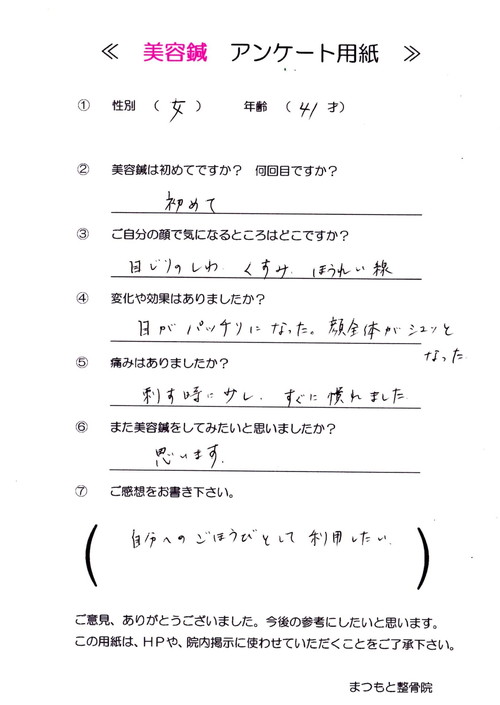 ≪ 美容鍼 アンケート用紙 ≫
① 性別 （ 女 ） 年齢 （ 41 才）
② 美容鍼は初めてですか？ 何回目ですか？
初めて
③ ご自分の顔で気になるところはどこですか？
目じりのしわ、くすみ、ほうれい線
④ 変化や効果はありましたか？
目がパッチリになった。顔全体がシュッと
なった
⑤ 痛みはありましたか？
刺す時に少し、すぐに慣れました
⑥ また美容鍼をしてみたいと思いましたか？
思います。
⑦ ご感想をお書き下さい。
自分へのごほうびとして利用したい
ご意見、ありがとうございました。今後の参考にしたいと思います。
この用紙は、ＨＰや、院内掲示に使わせていただくことをご了承下さい。
まつもと整骨院